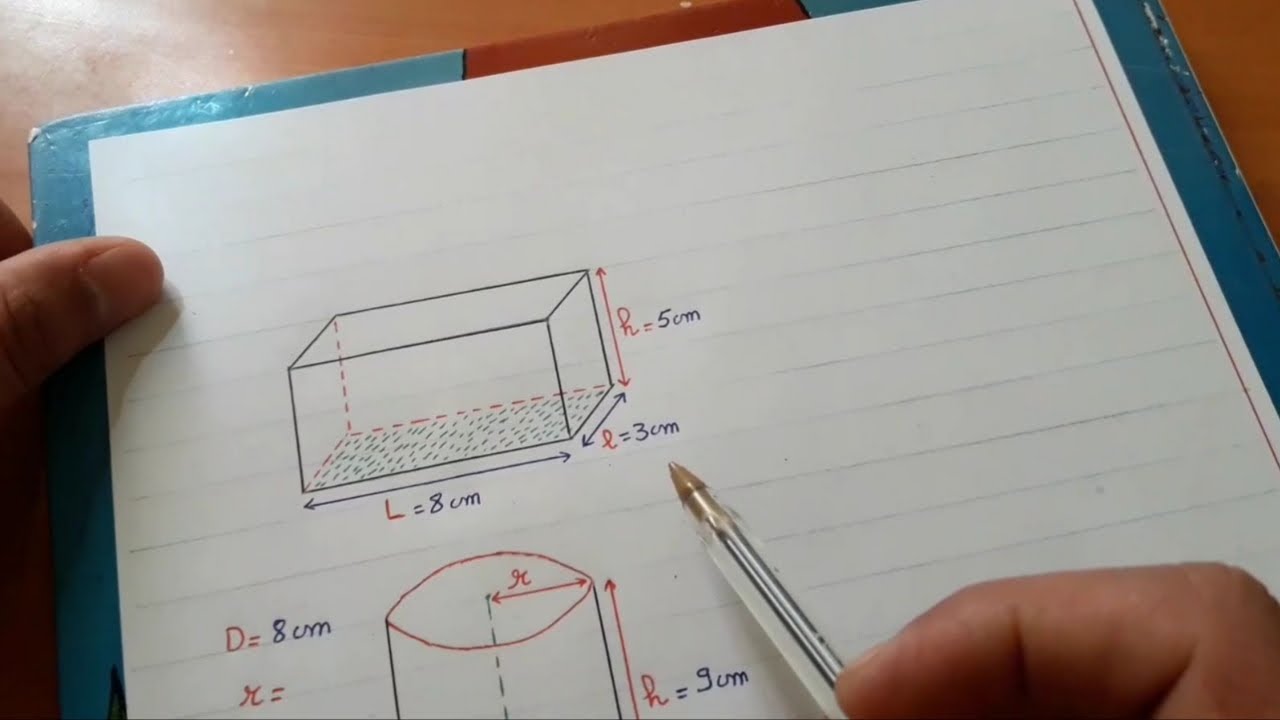 h = 5cm
l = 3cm
L = 8cm
r
D = 8cm
r =
h = 9cm